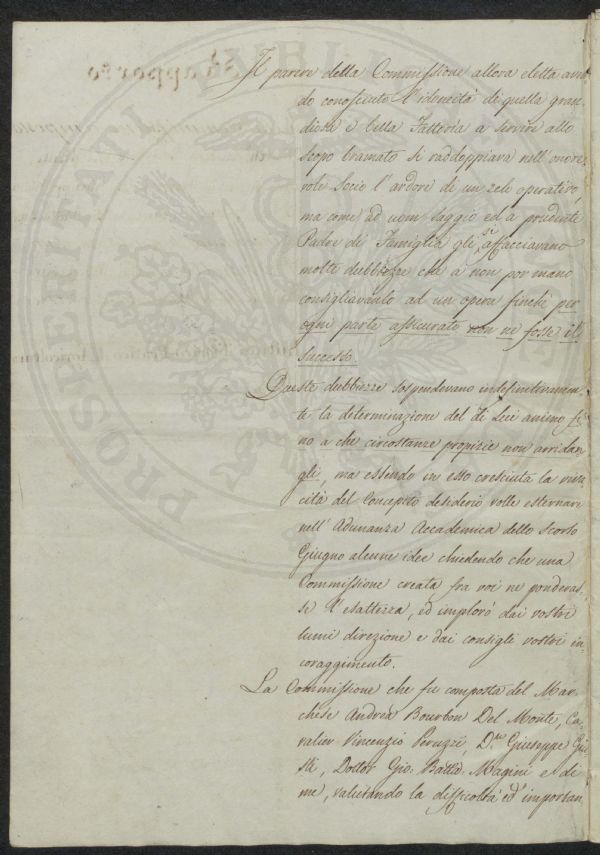 Il parere della Commissione allora eletta aven
do conosciuto l'idoneità di quella gran
diosa e bella Fattoria a servire allo
scopo bramato si raddoppiava nell'onore
vole Socio l'ardore di un zelo operativo,
ma come ad uom saggio ed a prudente
Padre di Famiglia gli si affacciavano
molte dubbiezze che a non por mano
consigliavanlo ad un opera finchè per
ogni parte assicurato non ne fosse il
successo.
Queste dubbiezze sospendevano indefinitevamen
te la determinazione del di Lui animo fi
no a che circostanze propizie non arridan
gli, ma essendo in esso cresciuta la viva
cità del Concepito desiderio volle esternare
nell'Adunanza Accademica dello scorso
Giugno alcune idee chiedendo che una
Commissione creata fra voi ne ponderas
se l'esattezza, ed implorò dai vostri
lumi direzione e dai consigli vostri in
coraggimento.
La Commissione che fu composta del Mar
chese Andrea Bourbon Del Monte, Ca
valier Vincenzio Peruzzi, D.re Giuseppe Giu
sti, Dottor Gio: Batt.a Magini e di
me, valutando la difficoltà ed'importan
PROSPERITATI
Rapporto